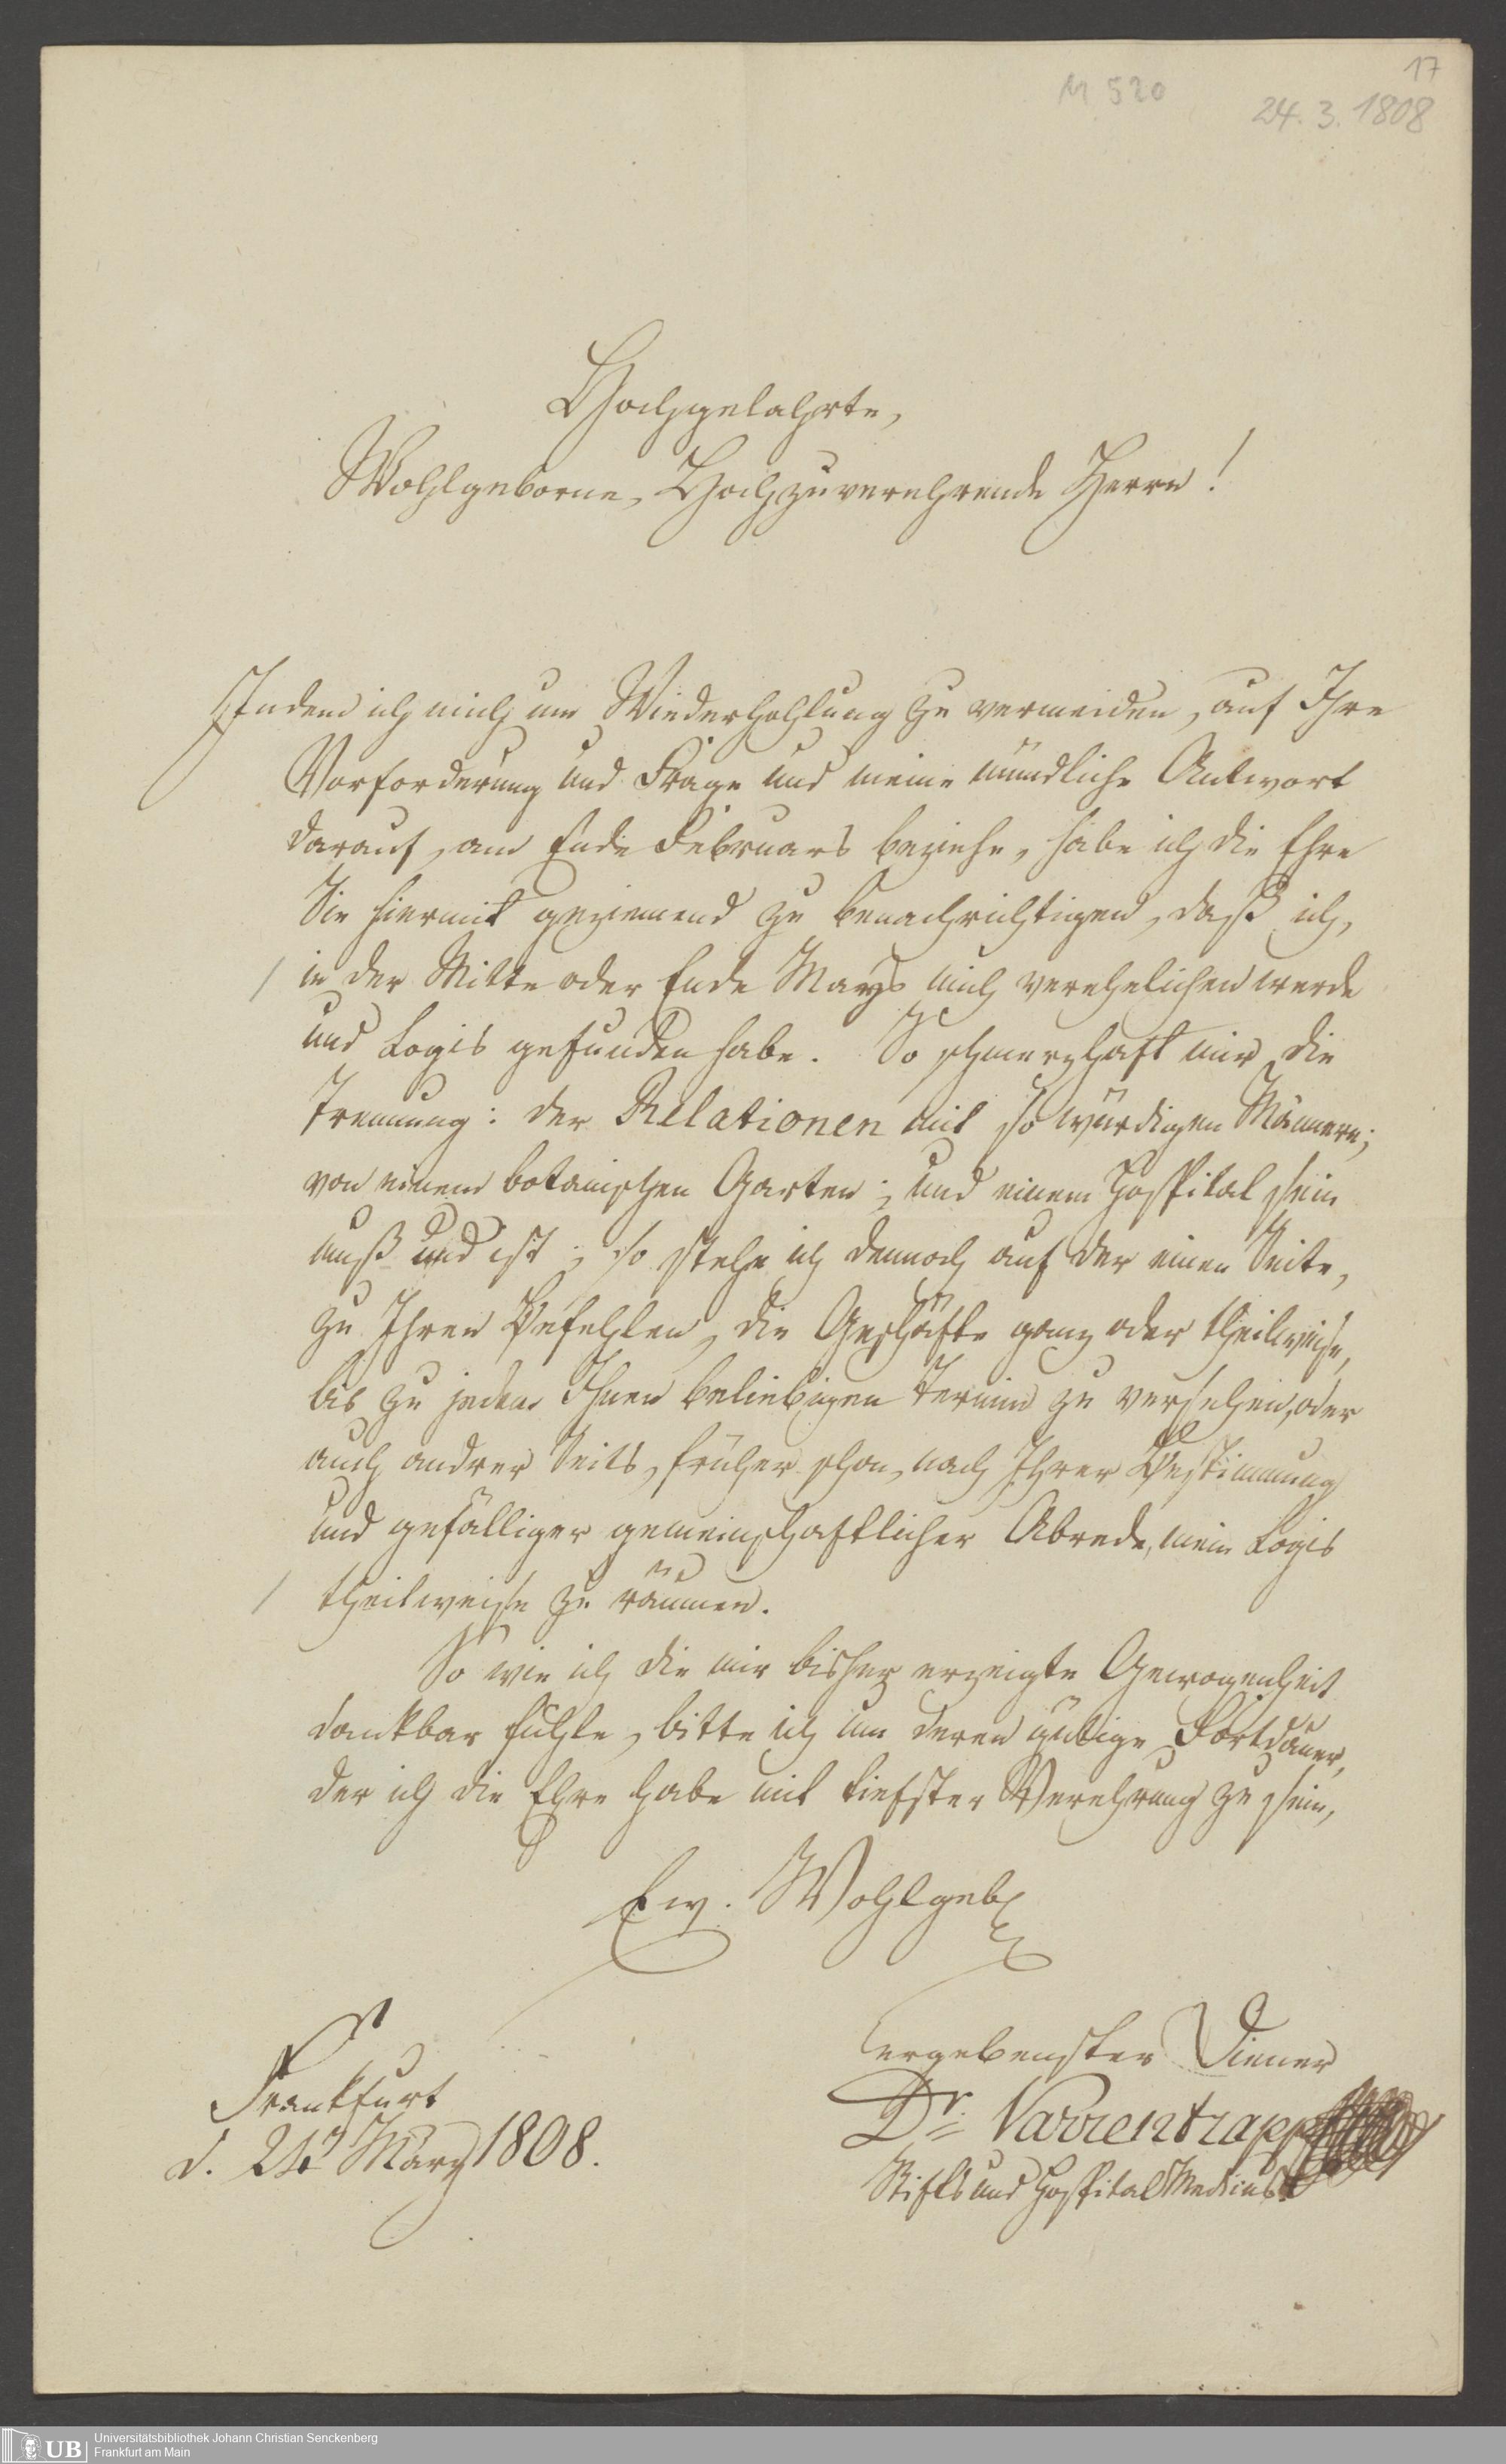 17
M 520
24. 3. 1808
Hochgelahrte,
Wohlgeborne, Hochzuverehrende Herrn!
Indem ich mich um Wiederhohlung zu vermeiden, auf Ihre
Vorforderung und Frage und meine mündliche Antwort
darauf, am Ende Februars beziehe, habe ich die Ehre
Sie hiermit geziemend zu benachrichtigen, daß ich,
in der Mitte oder Ende Mays mich verehelichen werde
und Logis gefunden habe. So schmerzhaft mir die
Trennung: der Relationen mit so würdigen Männern;
von einem botanischen Garten; und einem Hospital sein
muß und ist; so stehe ich dennoch auf der einen Seite,
zu Ihren Befehlen, die Geschäfte ganz oder theilweise,
bis zu jedem Ihnen beliebigen Termin zu versehen, oder
auch andrer Seits, früher schon, nach Ihrer Bestimmung
und gefälliger gemeinschaftlicher Abrede, mein Logis
theilweise zu räumen.
So wie ich die mir bisher erzeigte Gewogenheit
dankbar fühle, bitte ich um deren gütige Fortdauer,
der ich die Ehre habe mit tiefster Verehrung zu sein,
Ew. Wohlgeb
ergebenster Diener
Dr. Varrentrapp
Stifts und Hospital Medicus
Frankfurt
d. 24 März 1808.
UB
Universitätsbibliothek Johann Christian Senckenberg
Frankfurt am Main